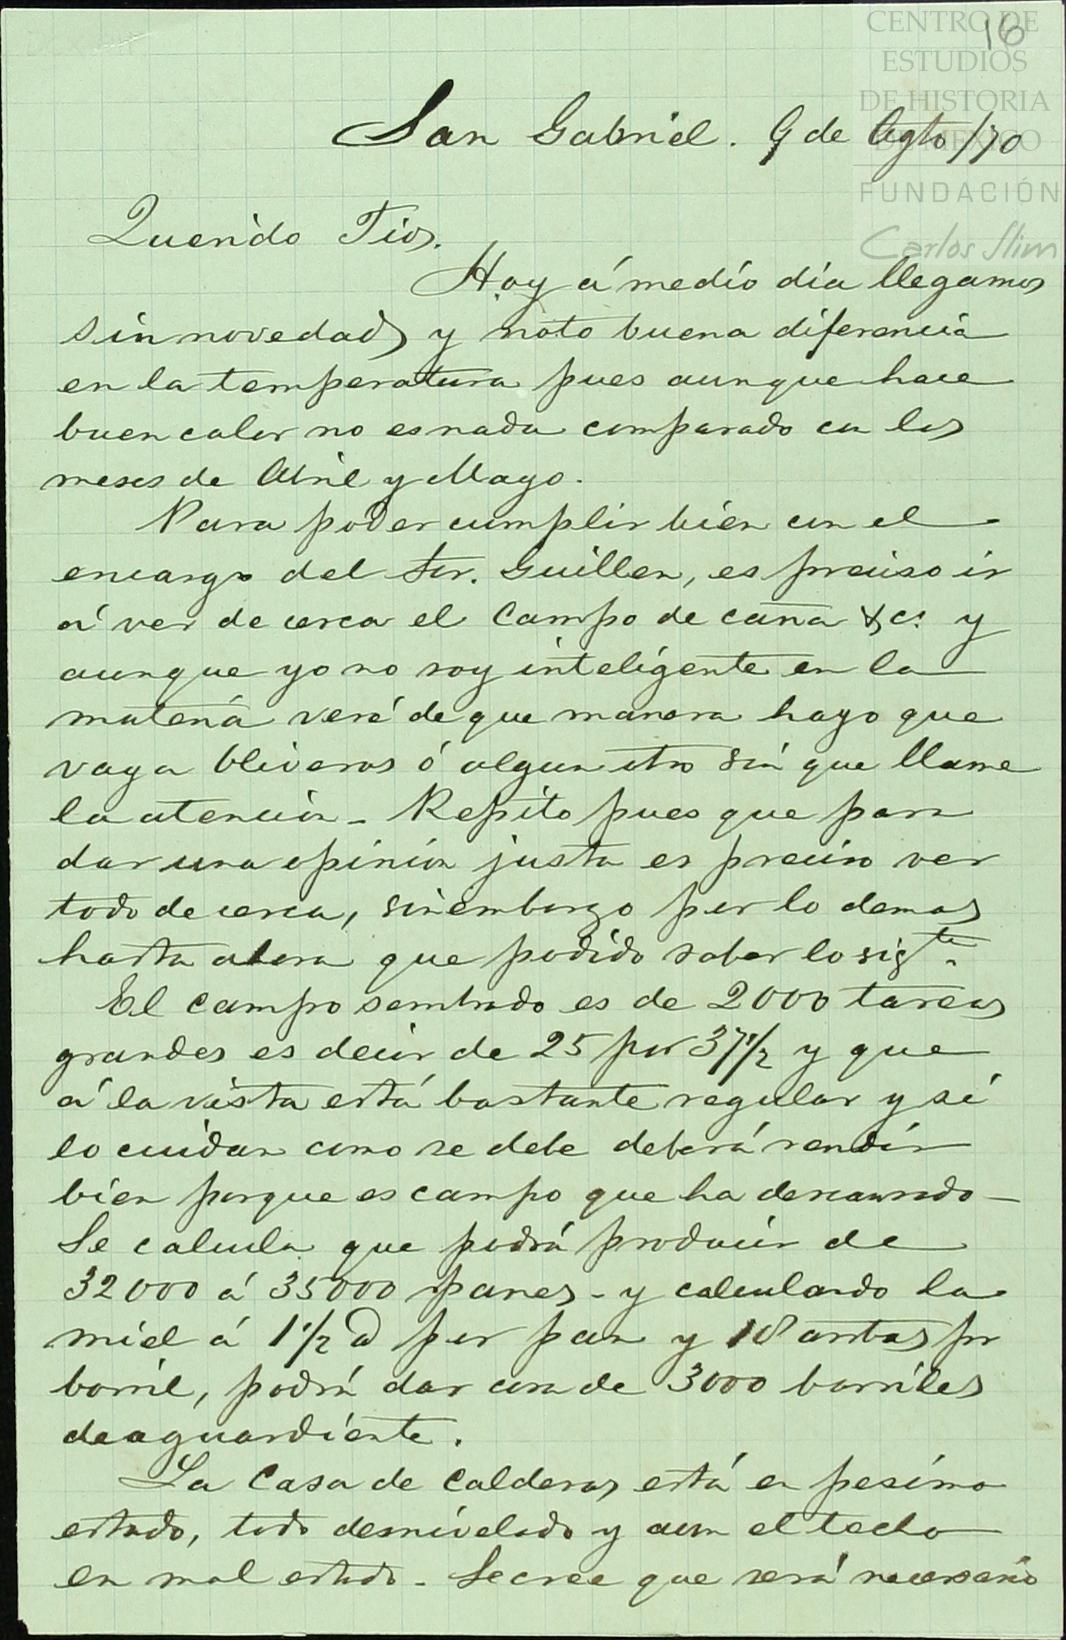 CENTRO DE
ESTUDIOS
DE HISTORIA
DE MÉXICO
FUNDACIÓN
Carlos Slim
16
San Gabriel. 9 de Agto/70
Querido Tios.
Hoy á medio dia llegamos
sin novedad, y noto buena diferencia
en la temperatura pues aunque hace
buen calor no es nada comparado con los
meses de Abril y Mayo.
Para poder cumplir bien con el
encargo del Sor. Guillen, es preciso ir
á ver de cerca el Campo de caña &c. y
aunque yo no soy inteligente en la
materia veré de que manera hago que
vaya Oliveros ó algun otro sin que llame
la atencion - Repito pues que para
dar una opinion justa es preciso ver
todo de cerca, sinembargo por lo demas
hasta ahora que podido saber lo sigte.
El campo sembrado es de 2000 tareas
grandes es decir de 25 por 37 1/2 y que
á la vista está bastante regular y si
lo cuidan como se debe deberá rendir
bien porque es campo que ha descansado -
Se calcula que podrá producir de
32000 á 35000 panes - y calculando la
miel á 1 1/2 @ por pan y 18 arrobas pr
barril, podrá dar cosa de 3000 barriles
de aguardiente.
La Casa de Calderas está en pesimo
estado, todo desnivelado y aun el techo
en mal estado - Se cree que será necesario